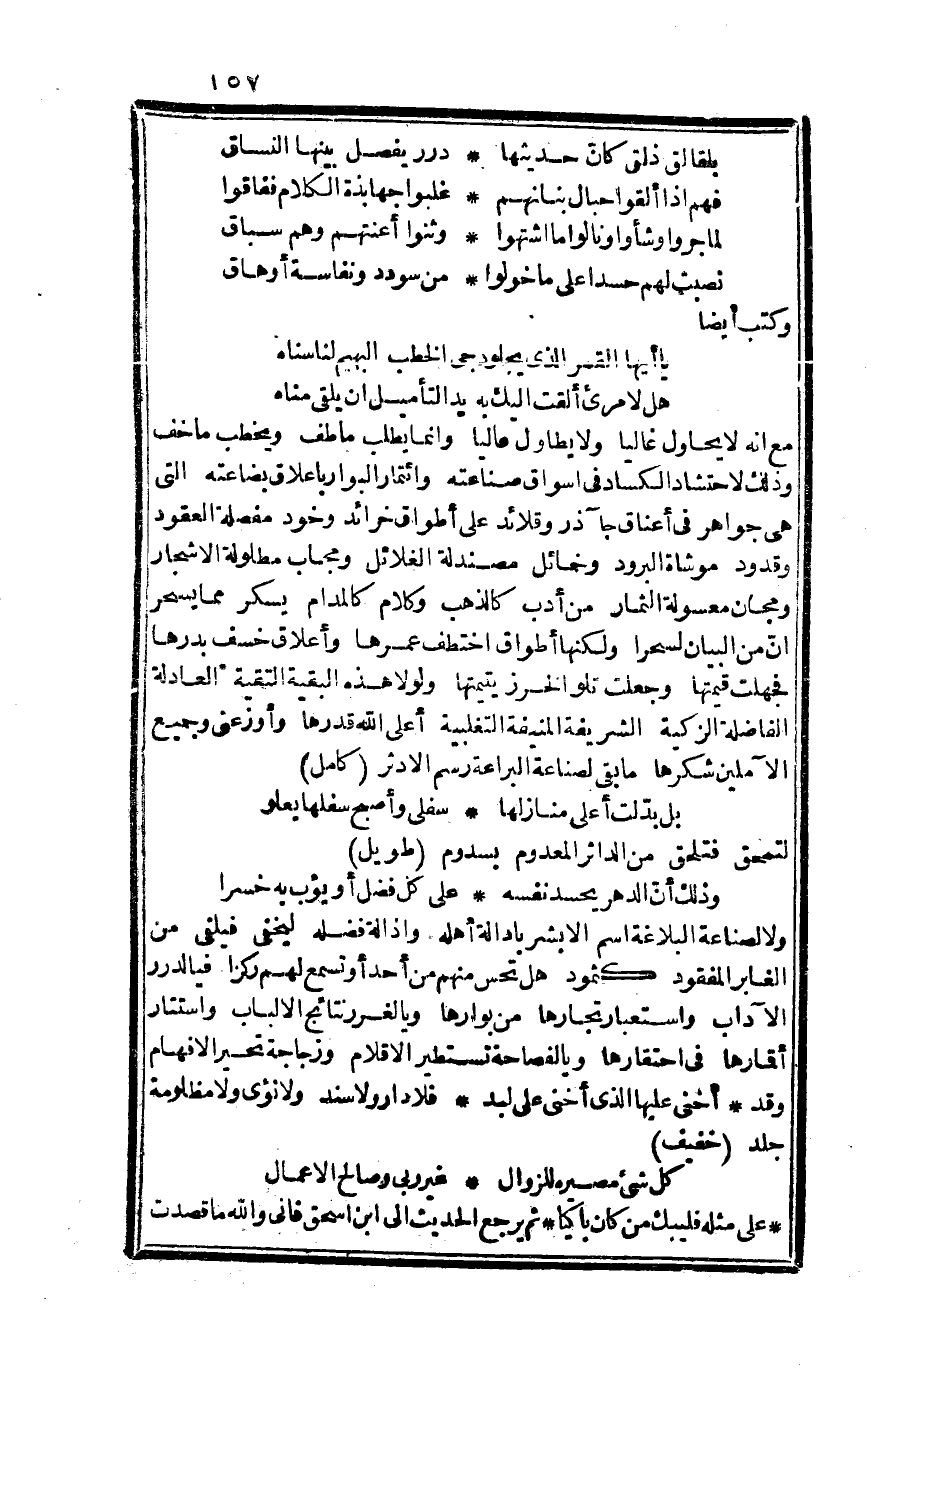 ١٥٧
بلقالق ذلق كأن حديثها * درر يفصل بينها النساق
فهم اذا ألقوا حبال بنانهم * غلبوا جهابذة الكلام ففاقوا
لما جروا وشأوا ونالوا ما اشتهوا * وثنوا أعنتهم وهم سباق
نصبت لهم حسدا على ما خولوا * من سودد ونفاسة أوهاق
وكتب أيضا
يا أيها القمر الذى يجلو دجى الخطب البهيم لنا سناه
هل لامرئ ألقت اليك به يد التأميل ان يلقى مناه
مع انه لا يحاول غاليا ولا يطاول عاليا وانما يطلب ما طف ويخطب ما خف
وذلك لاحتشاد الكساد فى اسواق صناعته وائتمار البوار باعلاق بضاعته التى
هى جواهر فى أعناق جآذر وقلائد على أطواق خرائد وخود مفصلة العقود
وقدود موشاة البرود وخمائل مصندلة الغلائل ومجاب مطلولة الاشجار
ومجان معسولة الثمار من أدب كالذهب وكلام كالمدام يسكر مما يسحر
انّ من البيان لسحرا ولكنها أطواق اختطف عمرها وأعلاق خسف بدرها
فجهلت قيمتها وجعلت تلو الخرز يتيمتها ولولا هذه البقية التقية العادلة
الفاضلة الزكية الشريفة المنيفة التغلبية أعلى الله قدرها وأوزعنى وجميع
الآملين شكرها ما بقى لصناعة البراعة رسم الادثر (كامل)
بل بدّلت أعلى منازلها * سفلى وأصبح سفلها يعلو
لتمحق فتلحق من الداثر المعدوم بسدوم (طويل)
وذلك أنّ الدهر يحسد نفسه * على كل فضل أو يؤب به خسرا
ولا لصناعة البلاغة اسم الا بشر بادالة أهله واذالة فضله ليخفى فيلفى من
الغابر المفقود كثمود هل تحس منهم من أحد أو تسمع لهم ركزا فيا لدرر
الآداب واستعبار تجارها من بوارها ويا لغرر نتائج الالباب واستتار
أقمارها فى احتقارها ويا لفصاحة تستطير الاقلام وزجاجة تحير الافهام
وقد * أخنى عليها الذى أخنى على لبد * فلا دار ولا سند ولا نؤى ولا مظلومة
جلد (خفيف)
كل شئ مصيره للزوال * غير ربى وصالح الاعمال
* على مثله فليبك من كان باكيا * ثم يرجع الحديث الى ابن اسحق فانى والله ما قصدت